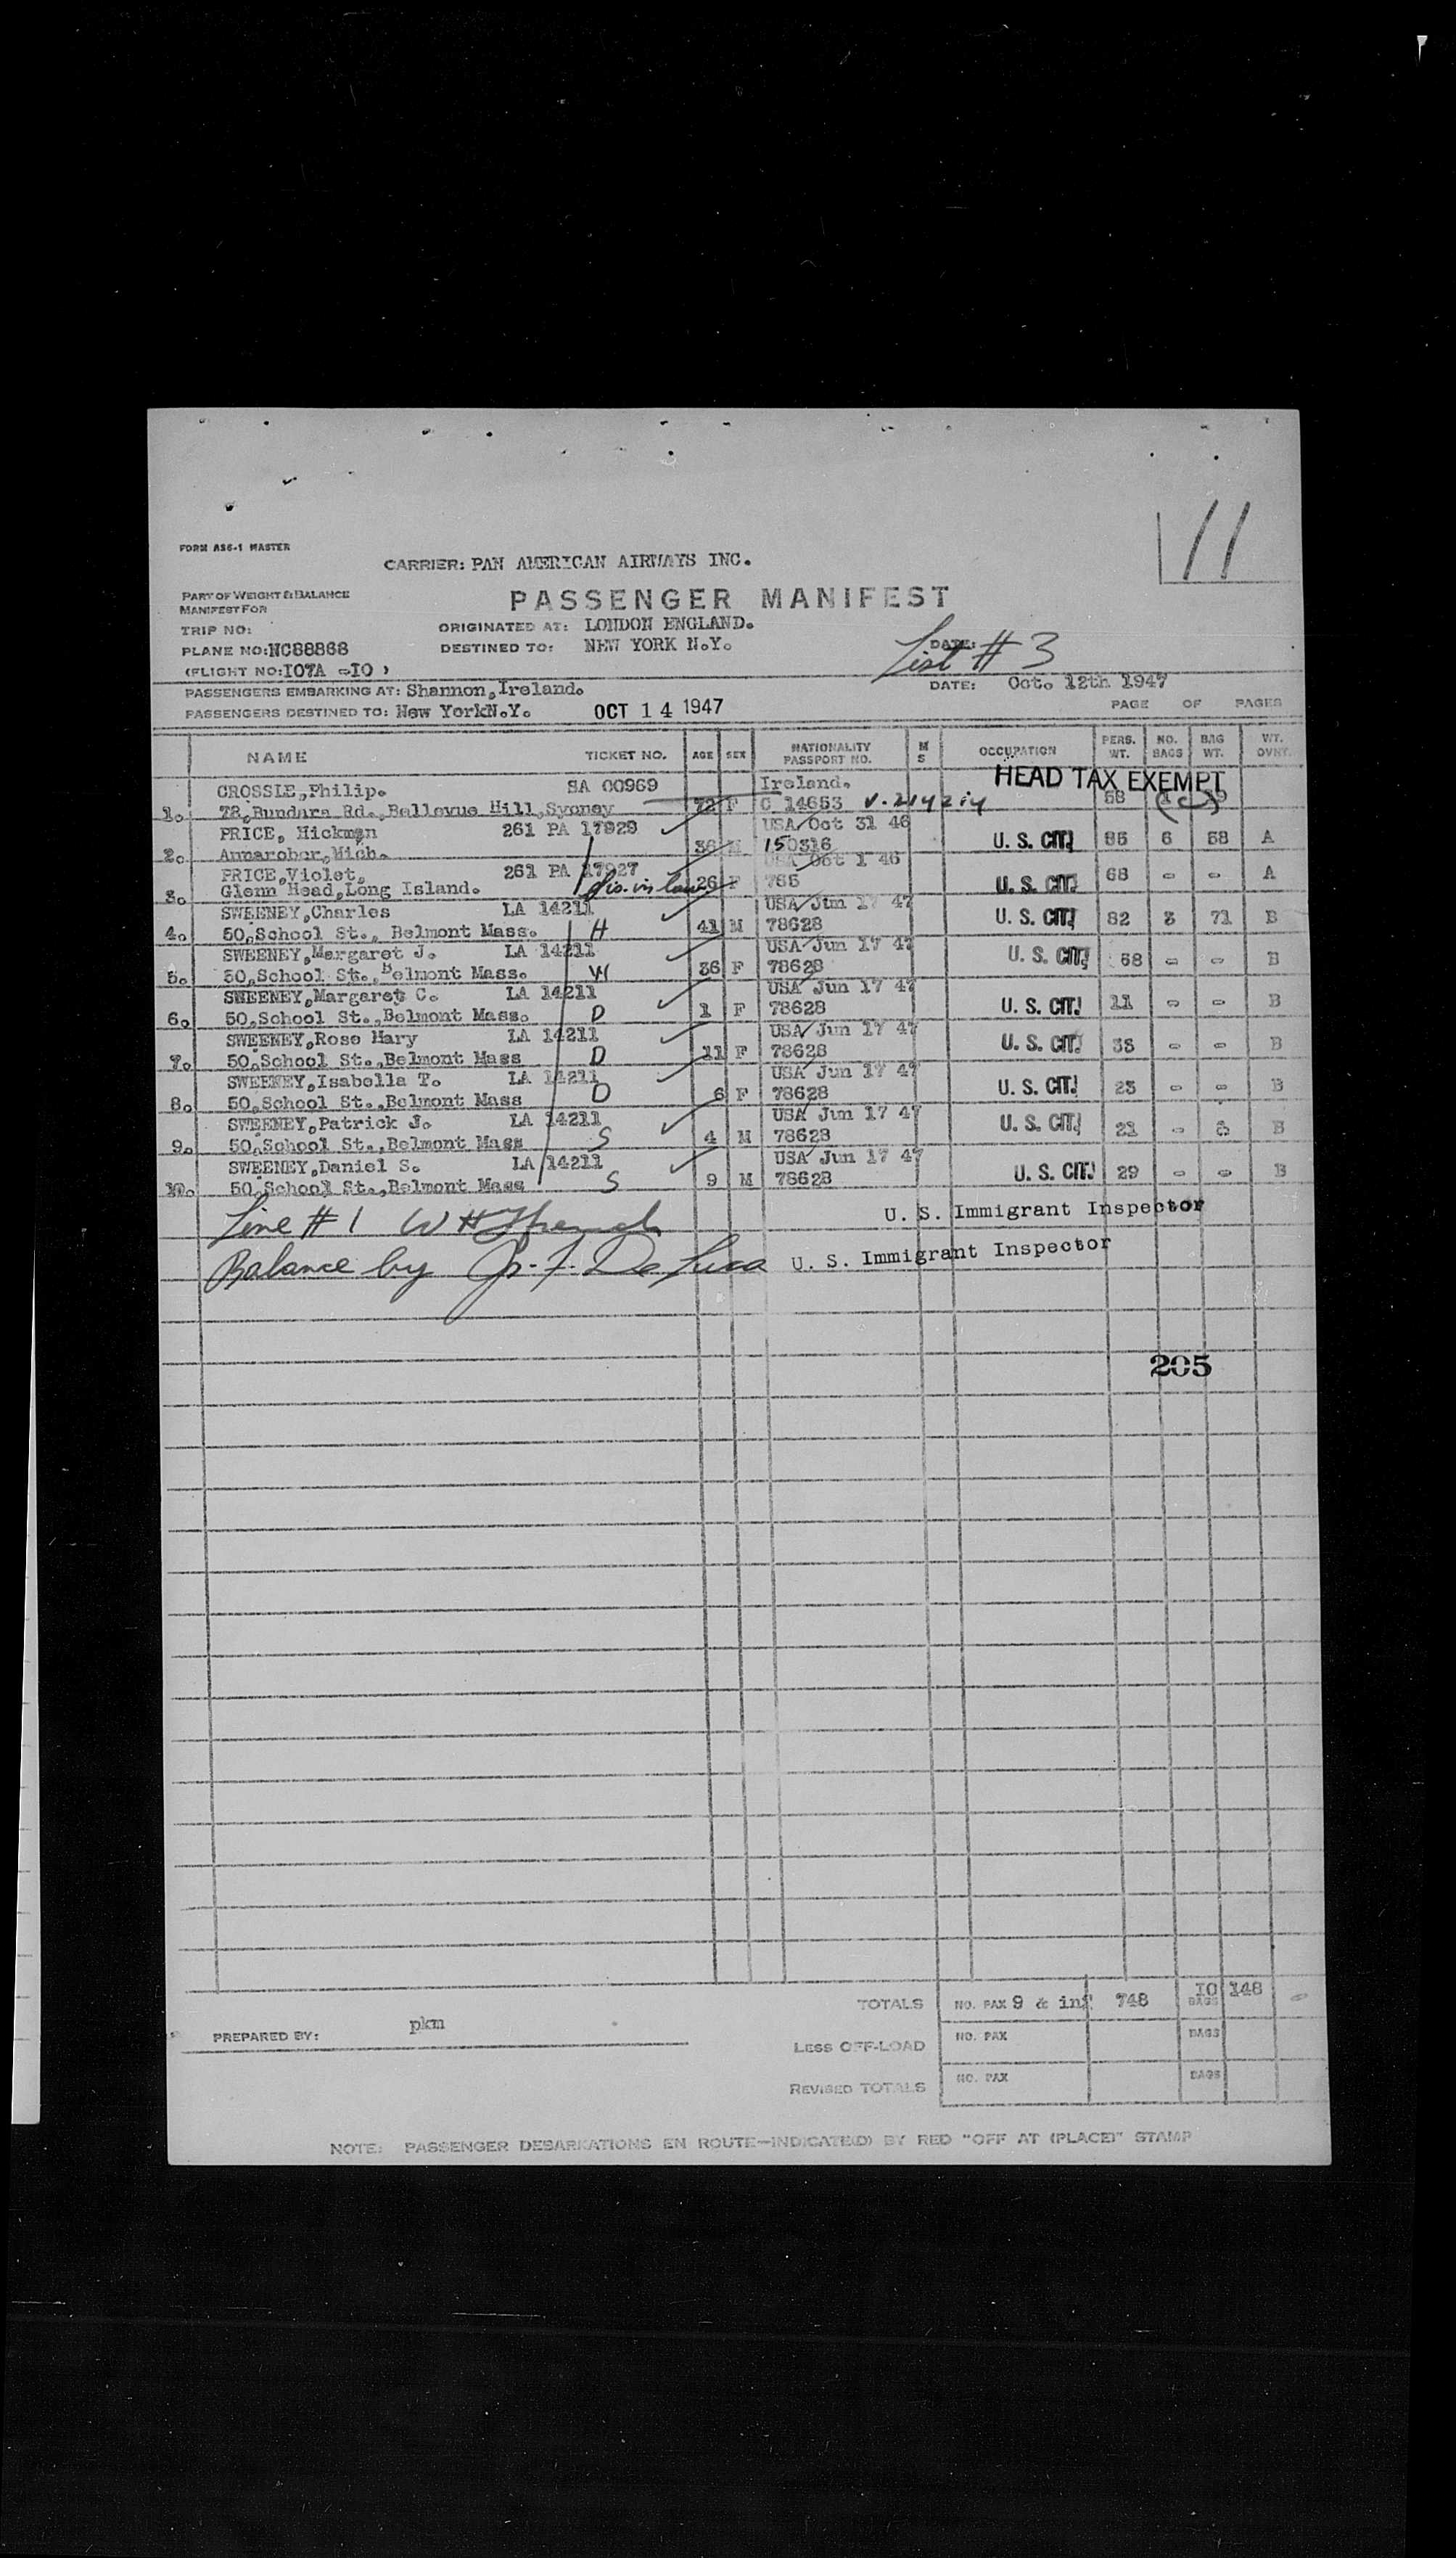 11
FORM AS6-1 MASTER
CARRIER: PAN AMERICAN AIRWAYS INC.
PART OF WEIGHT & BALANCE
MANIFEST FOR
PASSENGER MANIFEST
TRIP NO:
ORIGINATED AT: LONDON ENGLAND.
PLANE NO: NC88868
DESTINED TO: NEW YORK N.Y.
DATE:
List # 3
(FLIGHT NO: IO7A -IO )
PASSENGERS EMBARKING AT: Shannon, Ireland.
DATE: Oct. 12th 1947
PASSENGERS DESTINED TO: New YorkN.Y. OCT 14 1947
PAGE OF PAGES
NAME TICKET NO. AGE SEX NATIONALITY PASSPORT NO. M S OCCUPATION PERS. WT. NO. BAGS BAG WT. WT. OVNT.
CROSSLE,Philip. SA 00969 Ireland. HEAD TAX EXEMPT
1. 78,Bundara Rd.,Bellevue Hill,Syoney 72 F C 14653 58
PRICE, Hickman 261 PA 17929 USA Oct 31 46
2. Annarober,Mich. 36 M 150316 U. S. CIT. 85 6 58 A
PRICE,Violet, 261 PA 17927 USA Oct 1 46
3. Glenn Head,Long Island. sis. in law 26 F 765 U. S. CIT. 68 - - A
SWEENEY,Charles LA 14211 USA Jun 17 47
4. 50,School St., Belmont Mass. H 41 M 78628 U. S. CIT. 82 3 71 B
SWEENEY,Margaret J. LA 14211 USA Jun 17 47
5. 50,School St.,Belmont Mass. W 36 F 78628 U. S. CIT. 68 - - B
SWEENEY,Margaret C. LA 14211 USA Jun 17 47
6. 50,School St.,Belmont Mass. D 1 F 78628 U. S. CIT. 11 - - B
SWEENEY,Rose Mary LA 14211 USA Jun 17 47
7. 50,School St.,Belmont Mass D 11 F 78628 U. S. CIT. 35 - - B
SWEENEY,Isabella T. LA 14211 USA Jun 17 47
8. 50,School St.,Belmont Mass D 6 F 78628 U. S. CIT. 23 - - B
SWEENEY,Patrick J. LA 14211 USA Jun 17 47
9. 50,School St.,Belmont Mass S 4 M 78628 U. S. CIT. 21 - - B
SWEENEY,Daniel S. LA 14211 USA Jun 17 47
10. 50,School St.,Belmont Mass S 9 M 78628 U. S. CIT. 29 - - B
Line # 1 W H U. S. Immigrant Inspector
Balance by De Luca U. S. Immigrant Inspector
205
TOTALS NO. PAX 9 & inf 748 IO BAGS 148
PREPARED BY: pkm
LESS OFF-LOAD NO. PAX BAGS
REVISED TOTALS NO. PAX BAGS
NOTE: PASSENGER DEBARKATIONS EN ROUTE—INDICATE(D) BY RED "OFF AT (PLACE)" STAMP